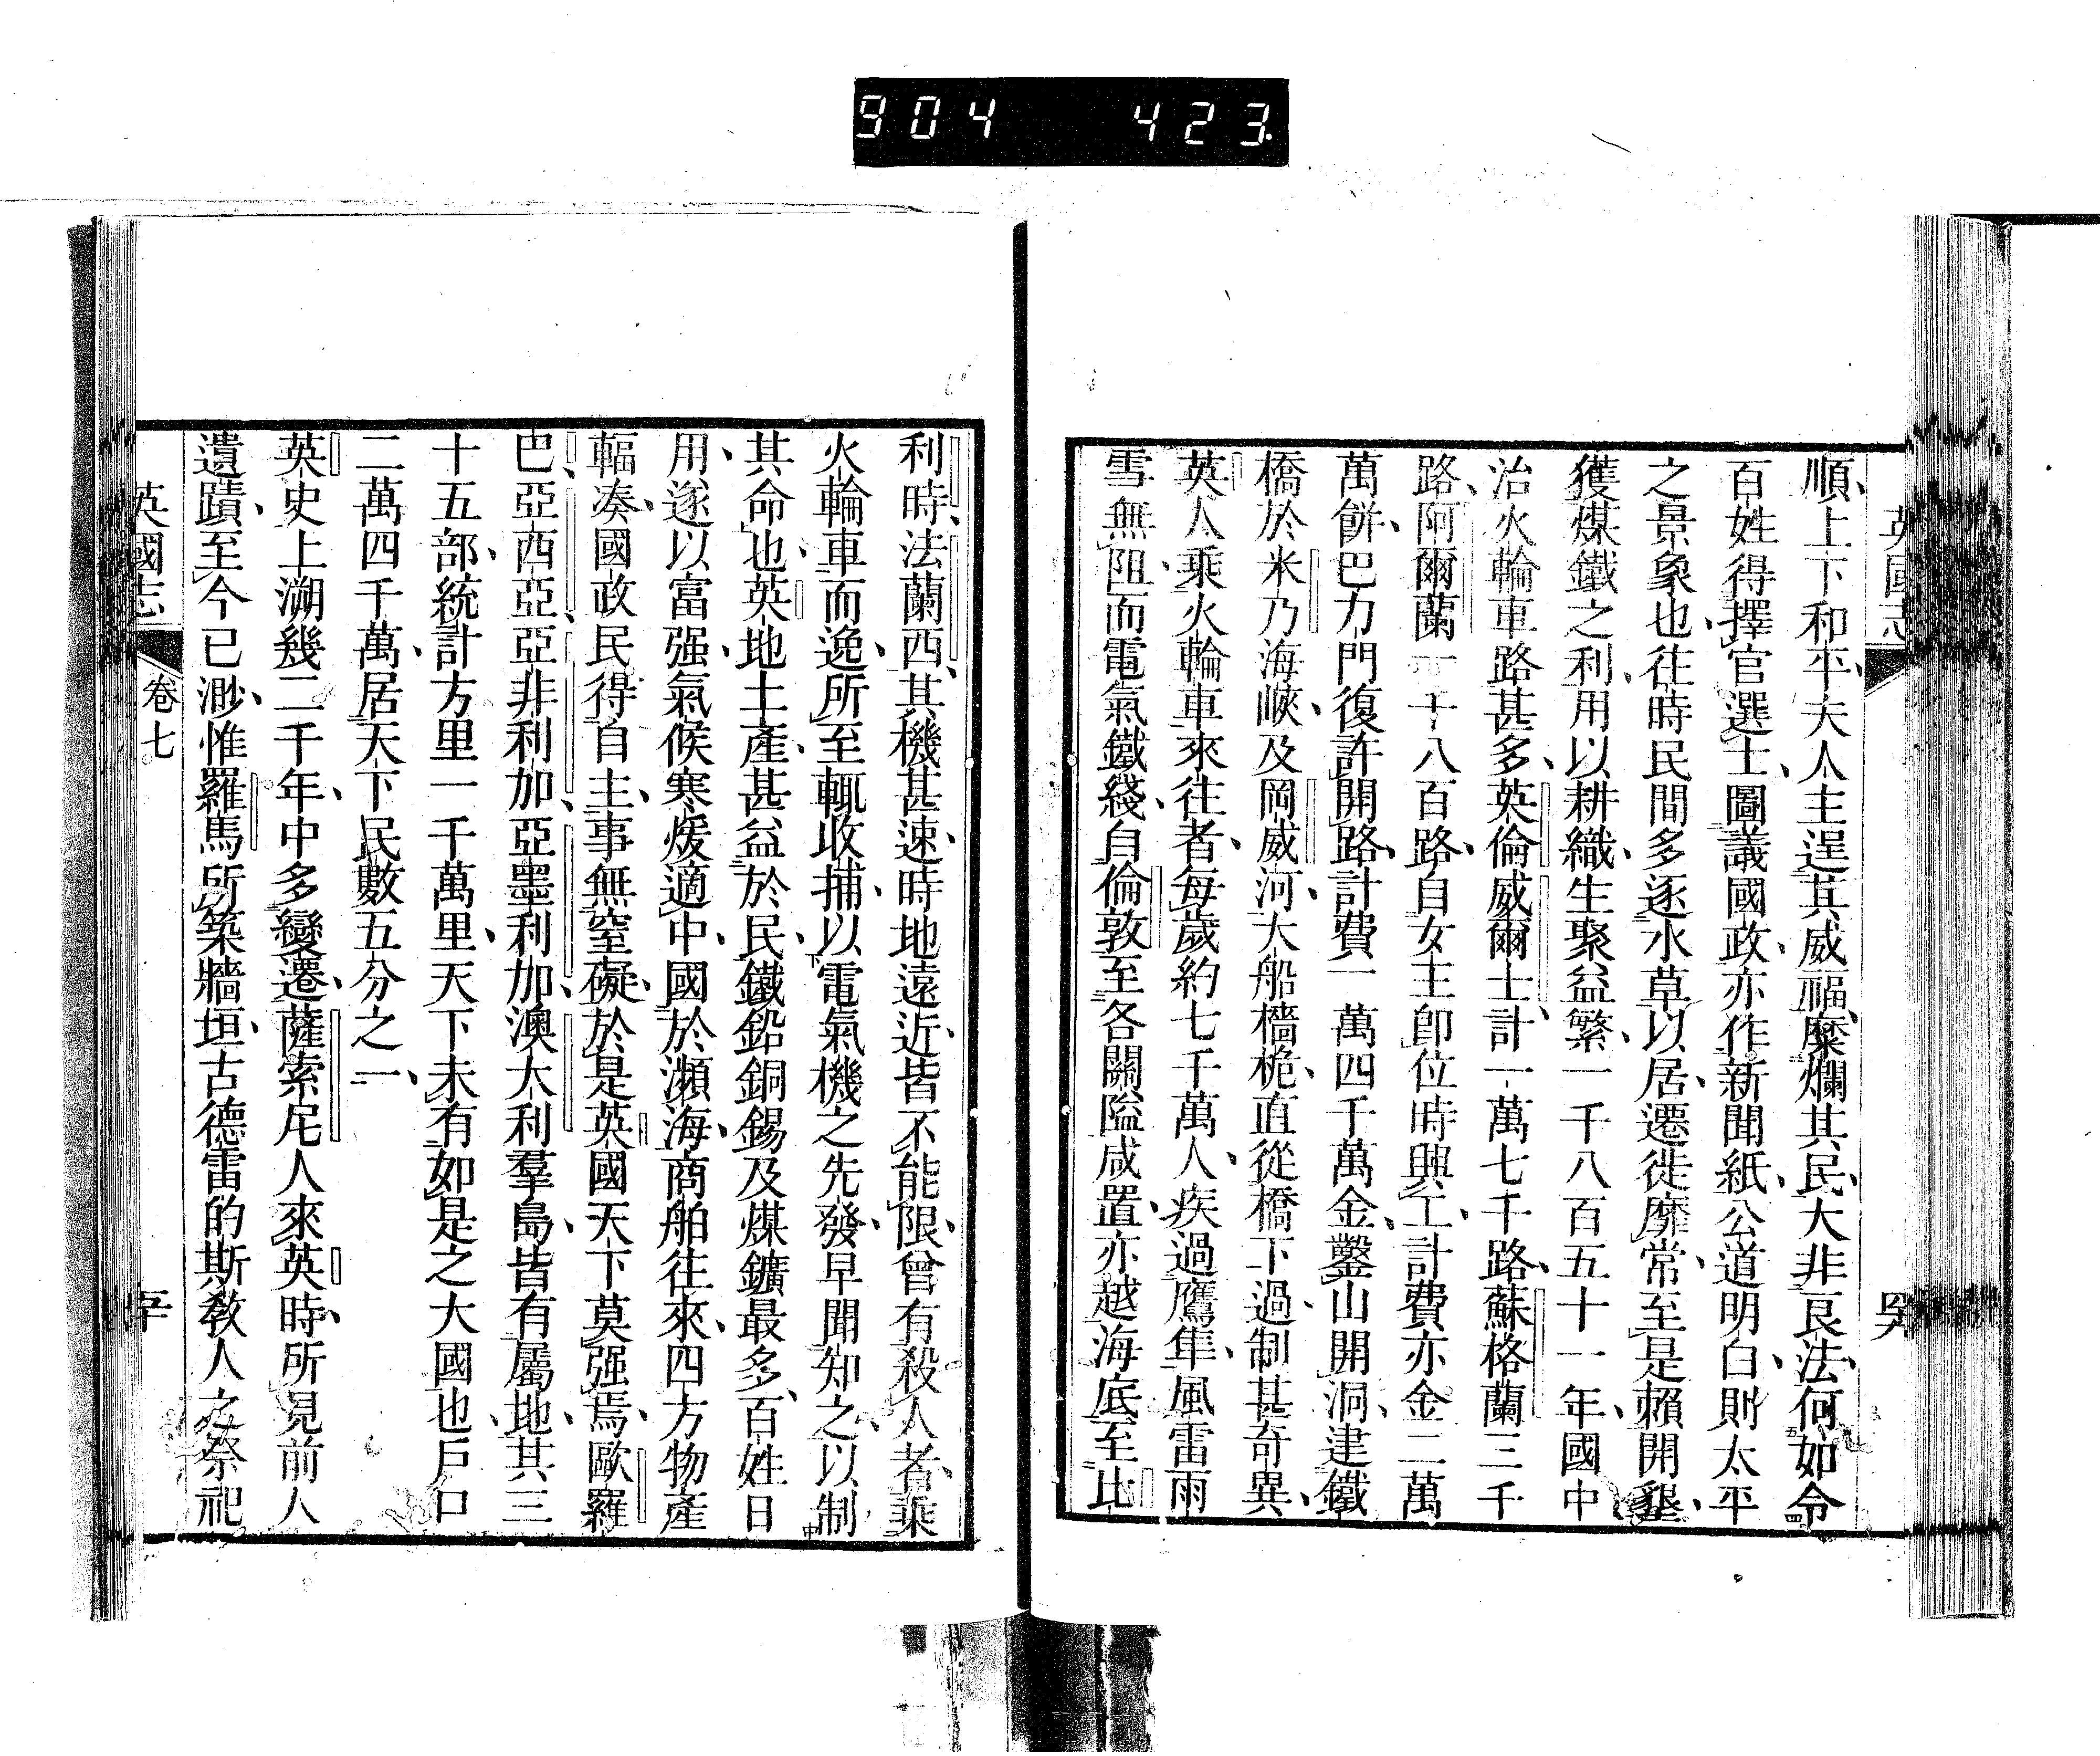 904 423
英國志
順上下和平夫人主逞其威福糜爛其民大非良法何如令
百姓得擇官選士圖議國政亦作新聞紙公道明白則太平
之景象也往時民間多逐水草以居遷徙靡常至是賴開墾
獲煤鐵之利用以耕織生聚益繁一千八百五十一年國中
治火輪車路甚多英倫威爾士計一萬七千路蘇格蘭三千
路阿爾蘭一千八百路自女主卽位時興工計費亦金二萬
萬餅巴力門復許開路計費一萬四千萬金鑿山開洞建鐵
橋於米乃海峽及岡威河大船檣桅直從橋下過制甚奇異
英人乘火輪車來往者每歲約七千萬人疾過鷹隼風雷雨
雪無阻而電氣鐵綫自倫敦至各關隘咸置亦越海底至比
利時法蘭西其機甚速時地遠近皆不能限曾有殺人者乘
火輪車而逸所至輒收捕以電氣機之先發早聞知之以制
其命也英地土產甚益於民鐵鉛銅錫及煤鑛最多百姓日
用遂以富强氣候寒煖適中國於瀕海商舶往來四方物產
輻湊國政民得自主事無窒礙於是英國天下莫强焉歐羅
巴亞西亞亞非利加亞墨利加澳大利羣島皆有屬地其三
十五部統計方里一千萬里天下未有如是之大國也戶口
二萬四千萬居天下民數五分之一
英史上溯幾二千年中多變遷薩索尼人來英時所見前人
遺蹟至今已渺惟羅馬所築牆垣古德雷的斯敎人之祭祀
英國志
卷七